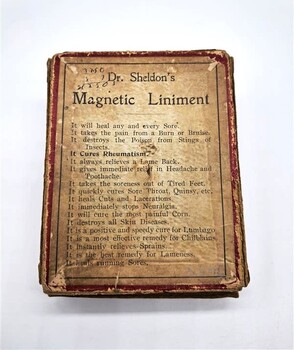 Dr. Sheldon's
Magnetic Liniment
It will heal any and every Sore.
It takes the pain from a Burn or Bruise.
It destroys the Poison from Stings of
Insects.
It Cures Rheumatism.
It always relieves a Lame Back.
It gives immediate relief in Headache and
Toothache.
It takes the soreness out of Tired Feet.
It quickly cures Sore Throat, Quinsy, etc.
It heals Cuts and Lacerations.
It immediately stops Neuralgia.
It will cure the most painful Corn.
It destroys all Skin Diseases.
It is a positive and speedy cure for Lumbago.
It is a most effective remedy for Chilblains.
It instantly relieves Sprains.
It is the best remedy for Lameness.
It heals running Sores.